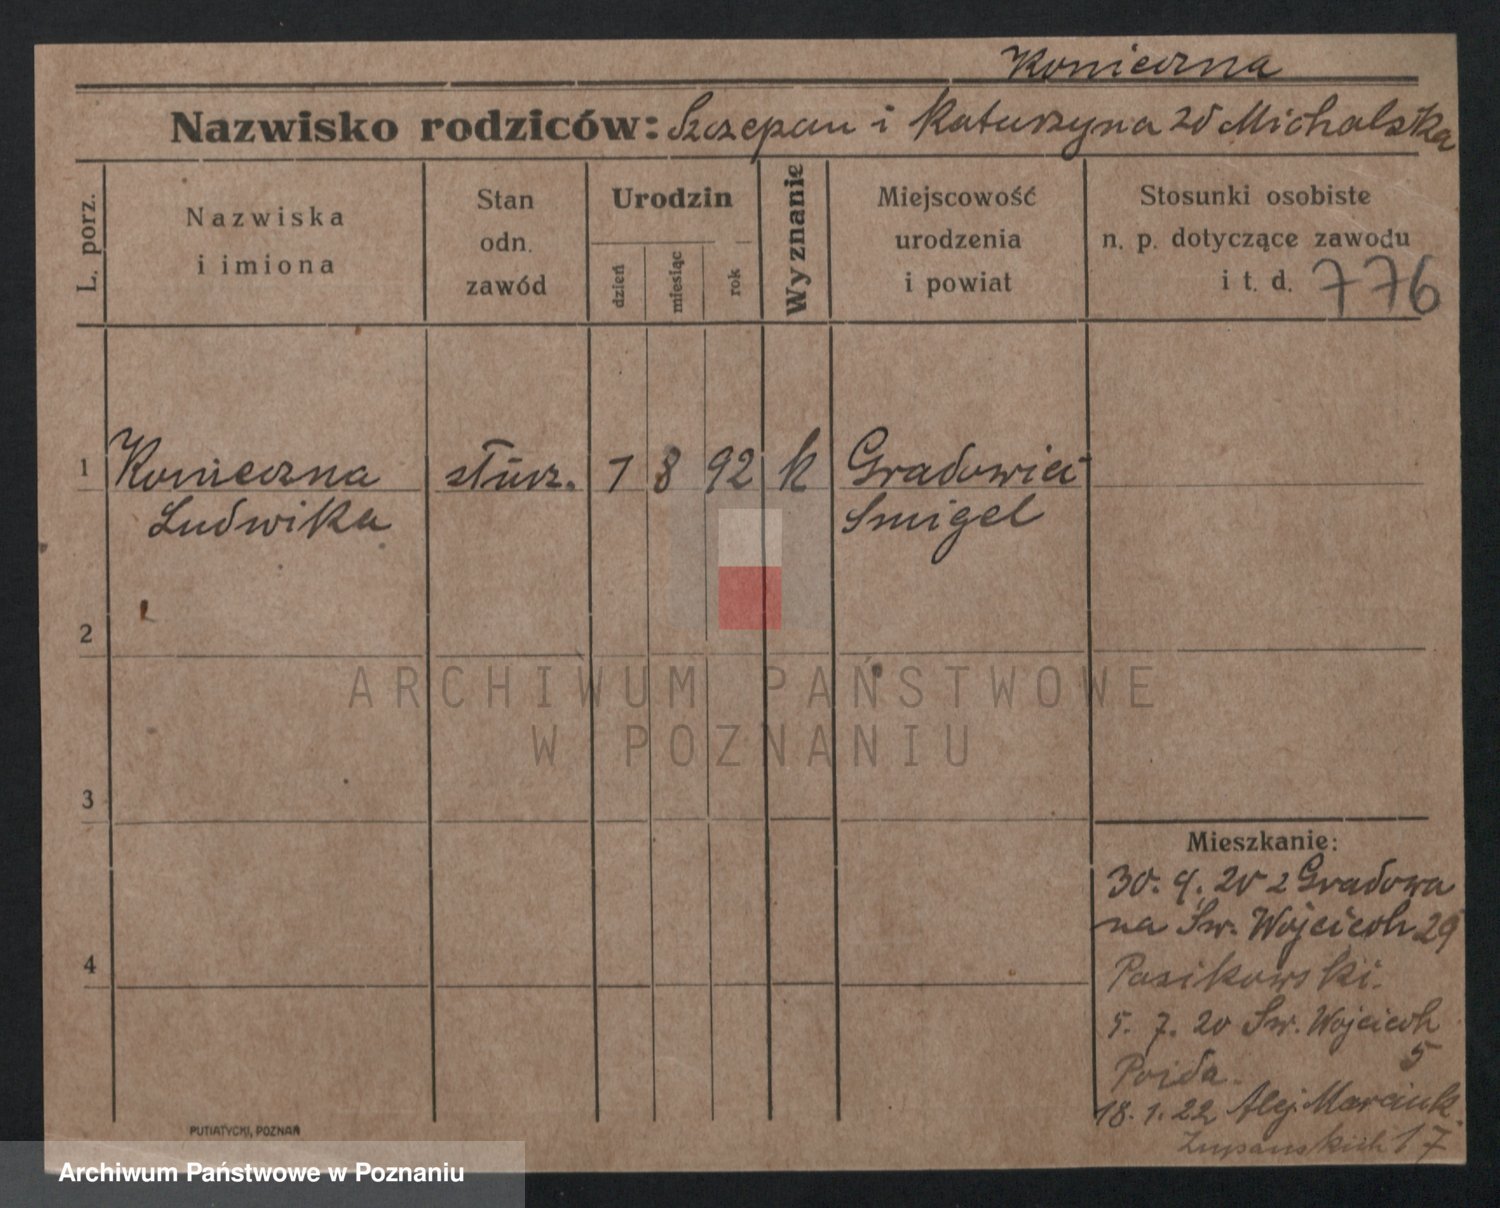 Konieczna
Nazwisko rodziców: Szczepan i Katarzyna zd Michalska
L. porz.
Nazwiska
i imiona
Stan
odn.
zawód
Urodzin
dzień
miesiąc
rok
Wyznanie
Miejscowość
urodzenia
i powiat
Stosunki osobiste
n. p. dotyczące zawodu
i t. d. 776
1 Konieczna służ. 1 8 92 k
Ludwika Smigel
2
ARCHIWUM PAŃSTWOWE
W POZNANIU
3
Mieszkanie:
30. 4. 20 z Gradowa
na Św. Wojciech 29
Pasikowski.
4
5. 7. 20 Św. Wojciech
5
Poida.
18. 1. 22 Alej. Marcink.
17
PUTIATYCKI, POZNAŃ
Archiwum Państwowe w Poznaniu